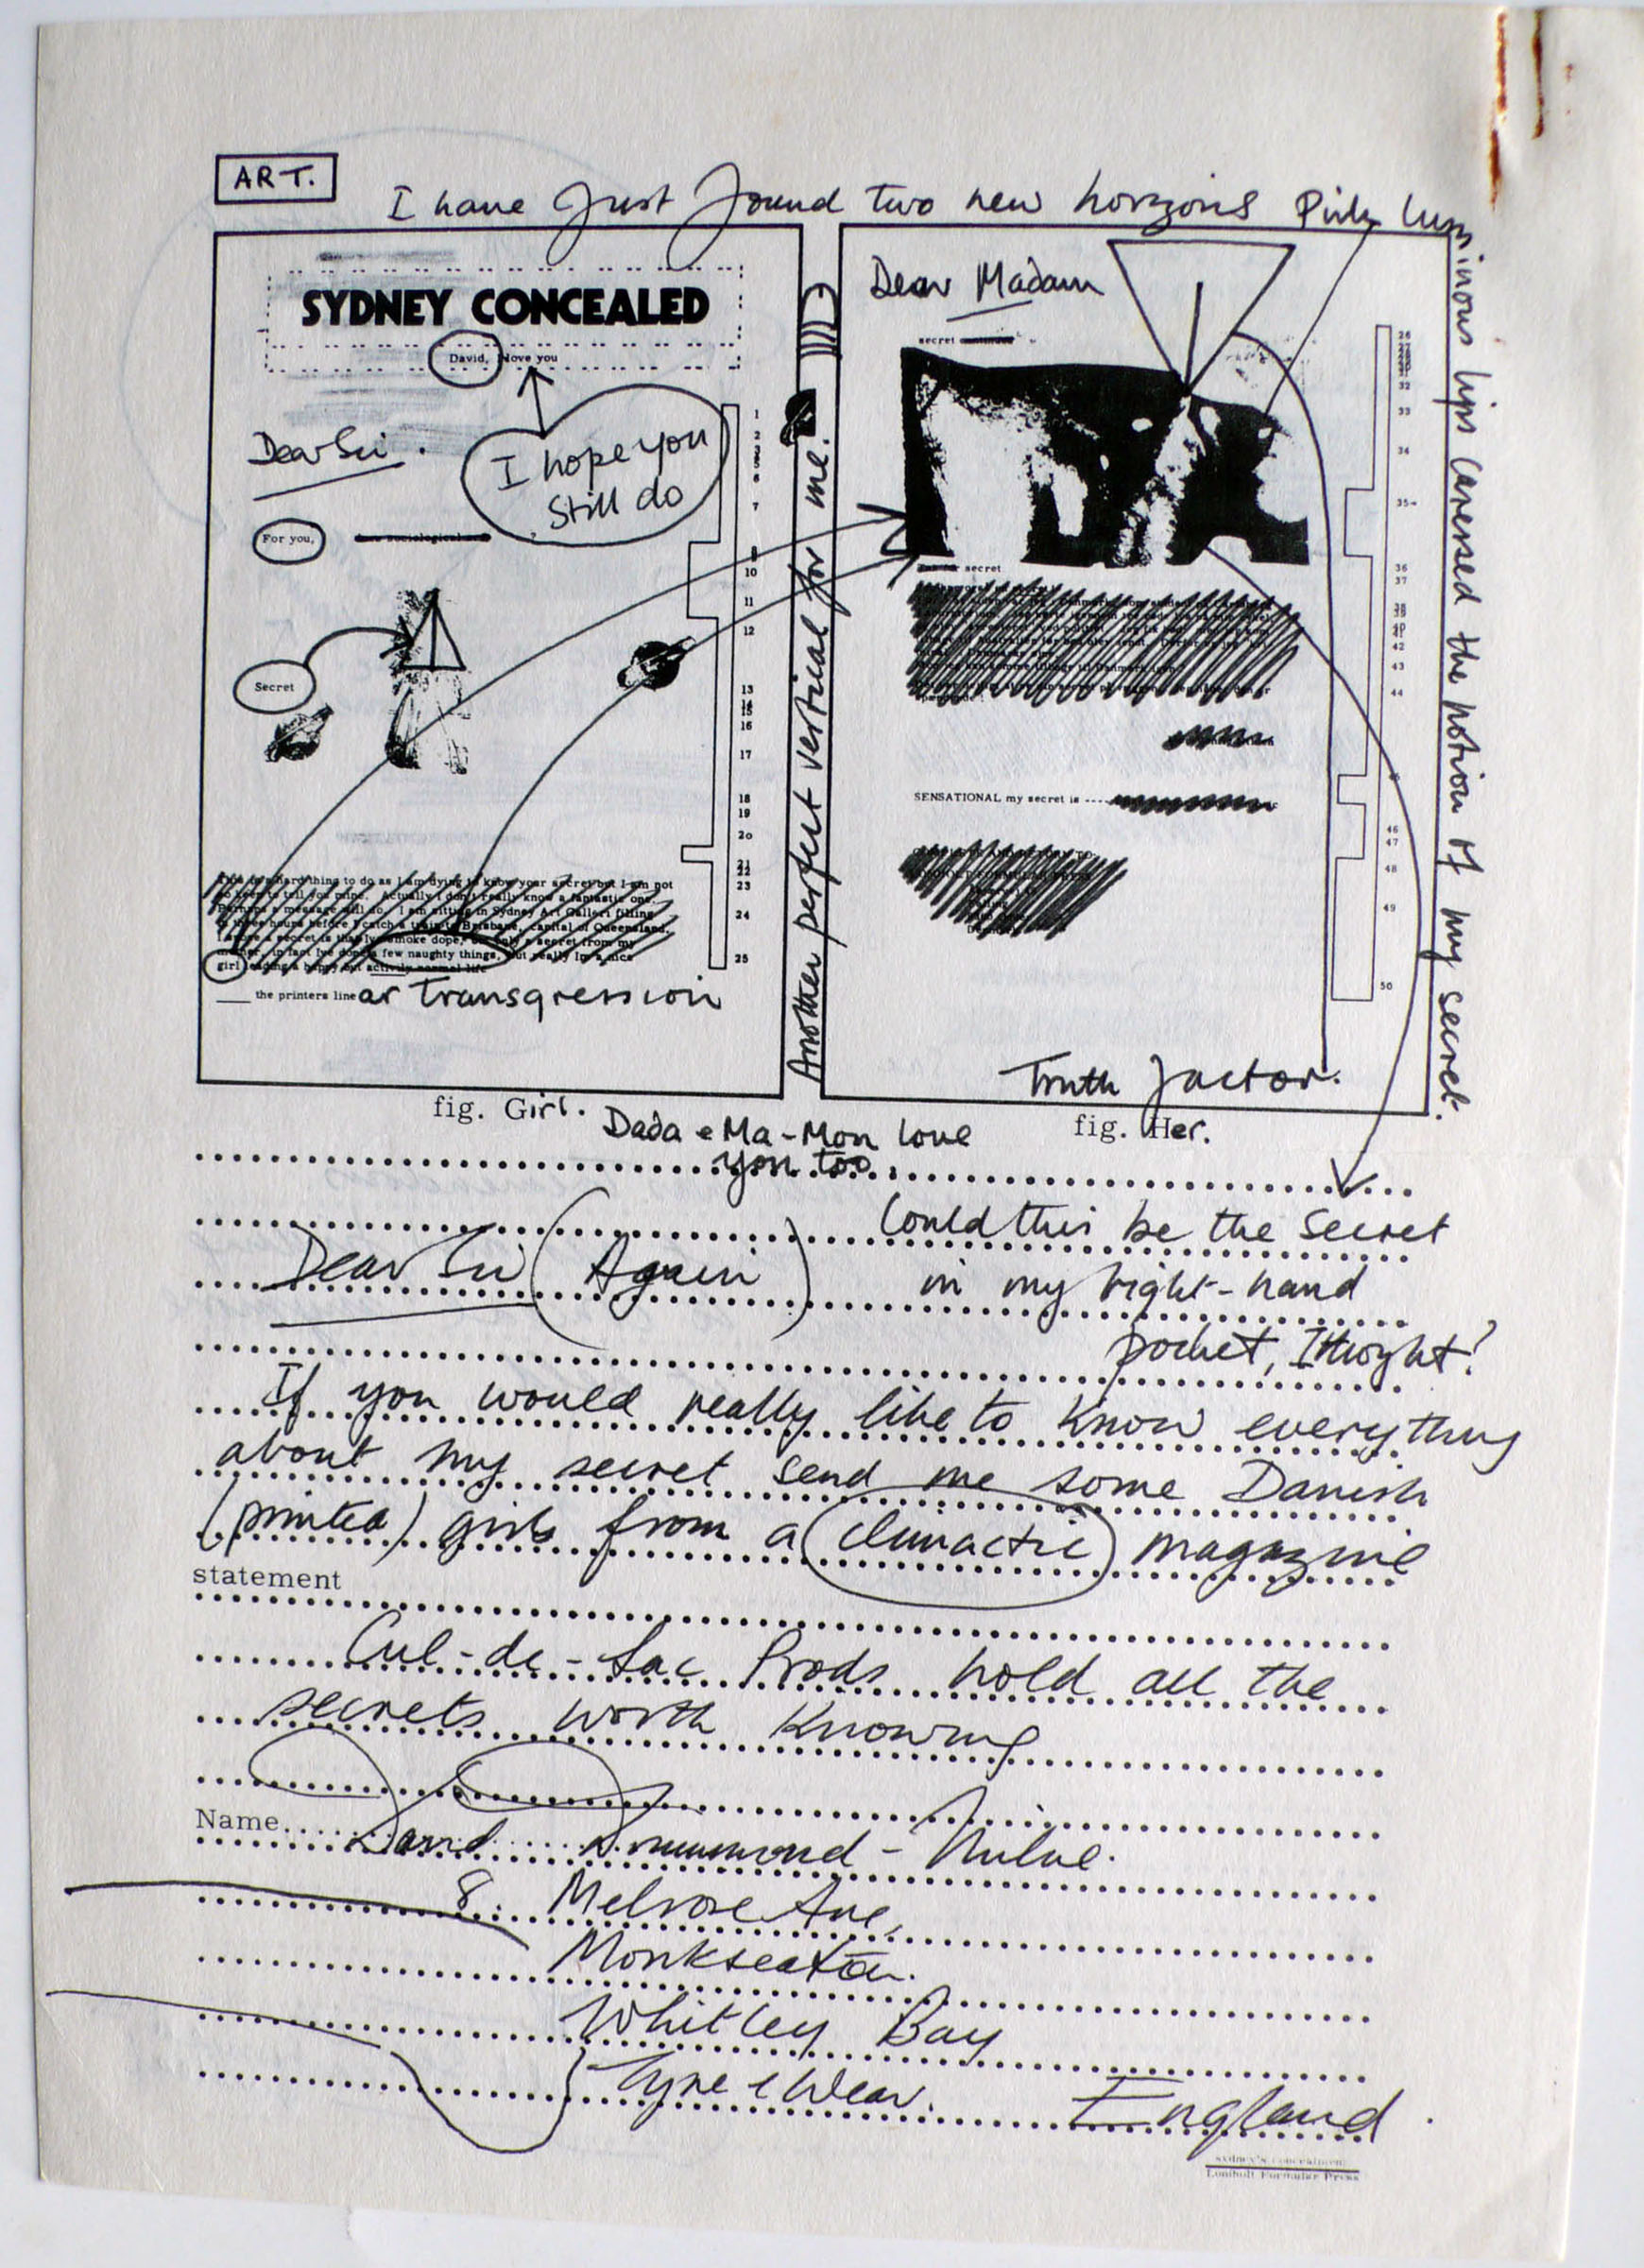 ART.
I have Just Found two new horizons Pink luminous lips caressed the notion of my secret.
SYDNEY CONCEALED
David, I love you
I hope you
Still do
Dear Sir.
For you,
Secret
This is a hard thing to do as I am dying to know your secret but I am not
so keen to tell you mine. Actually I don't really know a fantastic one.
Perhaps a message will do. I am sitting in Sydney Art Galleri filling
in three hours before I catch a train to Brisbane, capital of Queensland.
smoke dope, a secret from my
few naughty things, but really Im a nice
girl leading a happy but actively normal life
the printers linear Transgression
1
7
10
11
12
13
16
17
18
19
20
21
22
23
24
25
Another perfect vertical for me.
Dear Madam
secret
secret
SENSATIONAL my secret is ----
26
32
33
34
35
36
37
42
43
44
46
47
48
49
50
Truth factor.
fig. Girl.
fig. Her.
Dada & Ma-Mon love
you too.
Could this be the Secret
Dear Sir (Again)
in my right-hand
pocket, I thought?
If you would really like to know everything
about my secret send me some Danish
(printed) girls from a (climactic) magazine
statement
Cul-de-Sac Prods hold all the
secrets worth knowing
Name
8. Melrose Ave,
Monkseaton.
Whitley Bay
Tyne & Wear.
England
sydney's concealment
Lomholt Formular Press